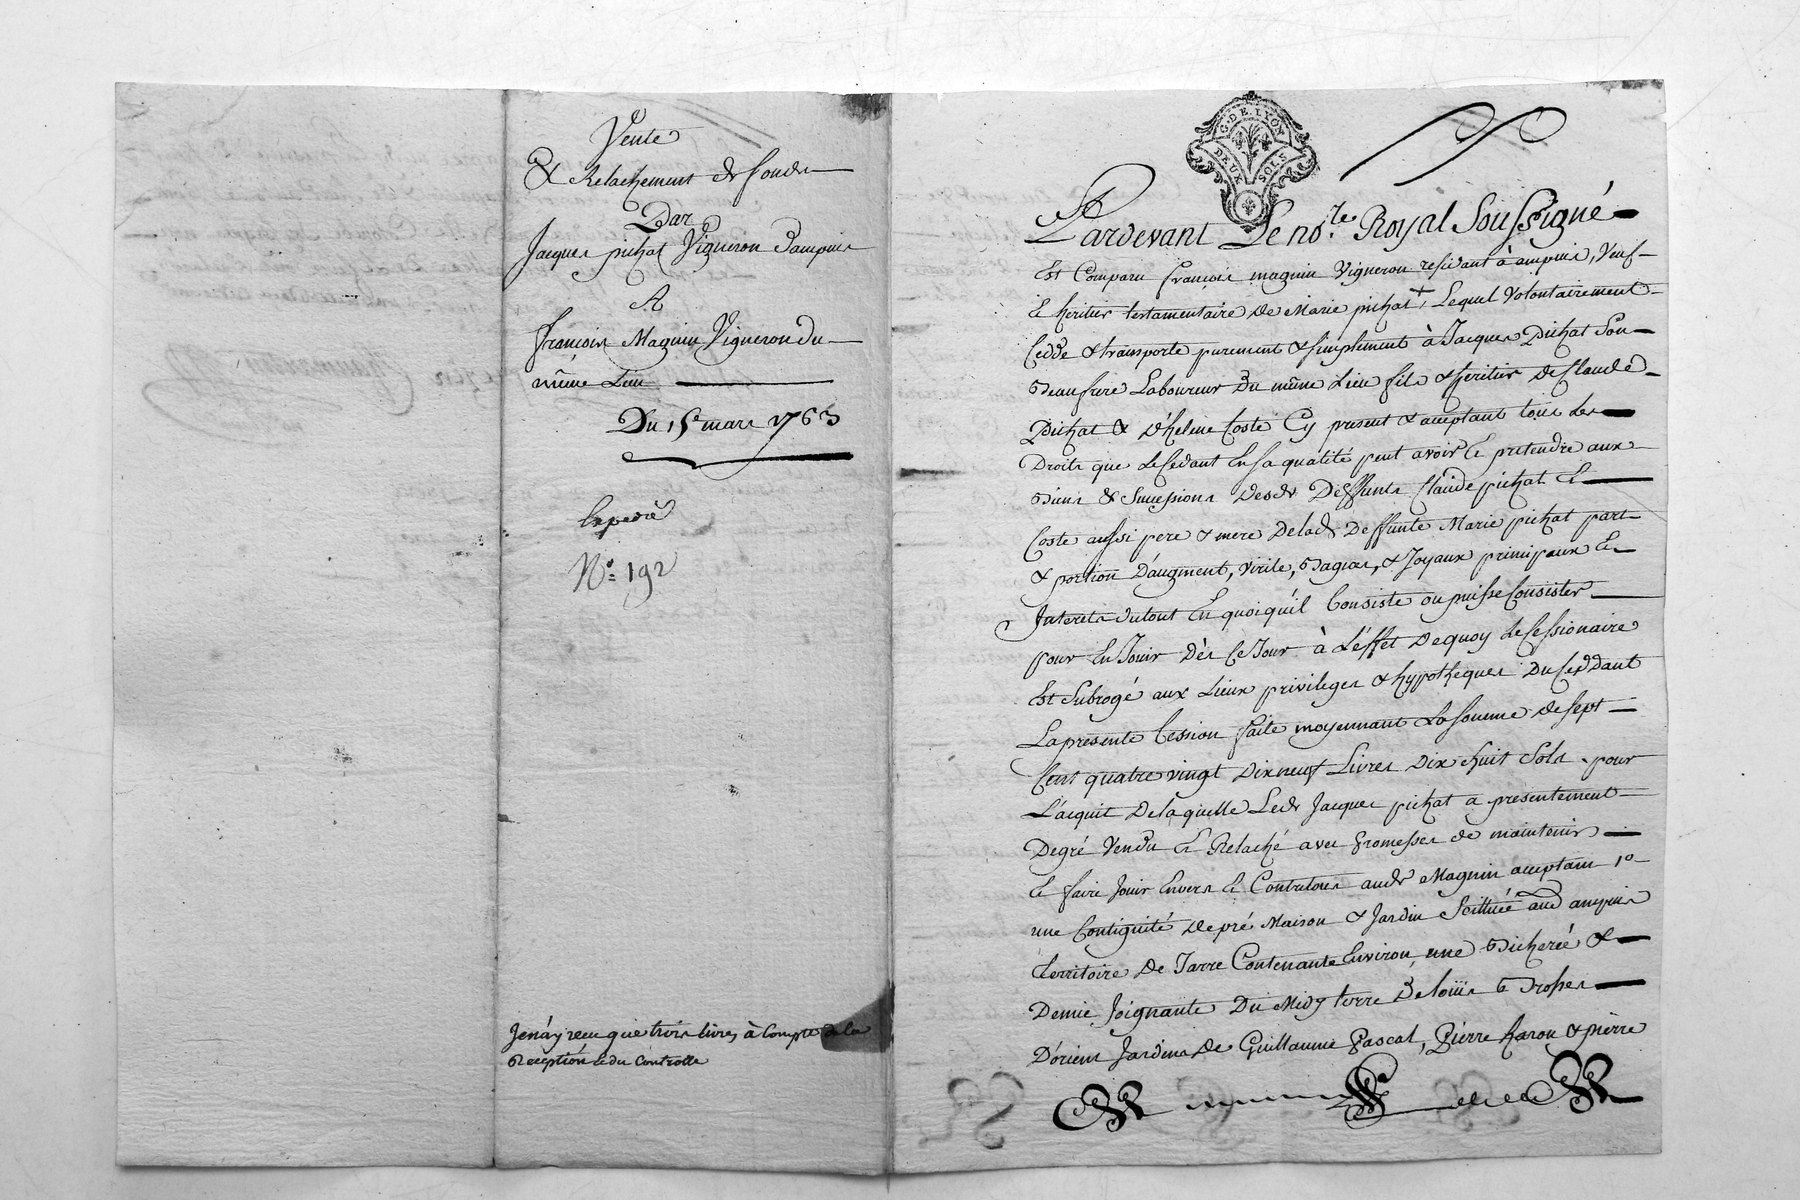 Vente
& Relachement de fonds
Par
Jacques pichat Vigneron dampuis
A
françois Magnin Vigneron du
même Lieu
Du 15e mars 1763
Expedié
No. 192
Jenáy recu que trois livres à Compte de la
Reception Et du Controlle
G. DE LYON
DEUX SOLS
Pardevant Le no.re Royal Soussigné
Est Comparu françois magnin Vigneron residant à ampuis, Veuf
& heritier testamentaire de Marie pichat +, Lequel Volontairement
Cedde & transporte purement & simplement à Jacques Pichat Son
Beaufrere Laboureur Du même Lieu fils & heritier de Claude
Pichat & d'helene Coste Cy present & acceptant tous Les
Droits que Le Cedant En sa qualité peut avoir Et pretendre aux
Biens & Successions Desds Deffunts Claude pichat Et
Coste aussi pere & mere De lade Deffunte Marie pichat part
& portion Daugment, Virile, Bagues, & Joyaux principaux Et
Interets du tout En quoi qu'il Consiste ou puisse Consister
pour En Jouir Dès Ce Jour à L'éffet De quoy Le Cessionaire
Est Subrogé aux Lieux privileges & hypotheques Du Ceddant
La presente Cession faite moyennant La somme de sept
Cent quatre vingt Dix neuf Livres Dix huit Sols. pour
L'acquit De laquelle Ledt Jacques pichat a presentement
Degré Vendu Et Relaché avec promesses de maintenir
Et faire Jouir Envers Et Contre tous audt Magnin acceptant 1o
une Contiguité de pré Maison & Jardin Scittuée aud ampuis
territoire de Tarre Contenante Environ, une Bicherée &
Demie Joignante Du Midy terre De loüis
D'orient Jardins de Guillaume Pascal, Pierre Baron & pierre